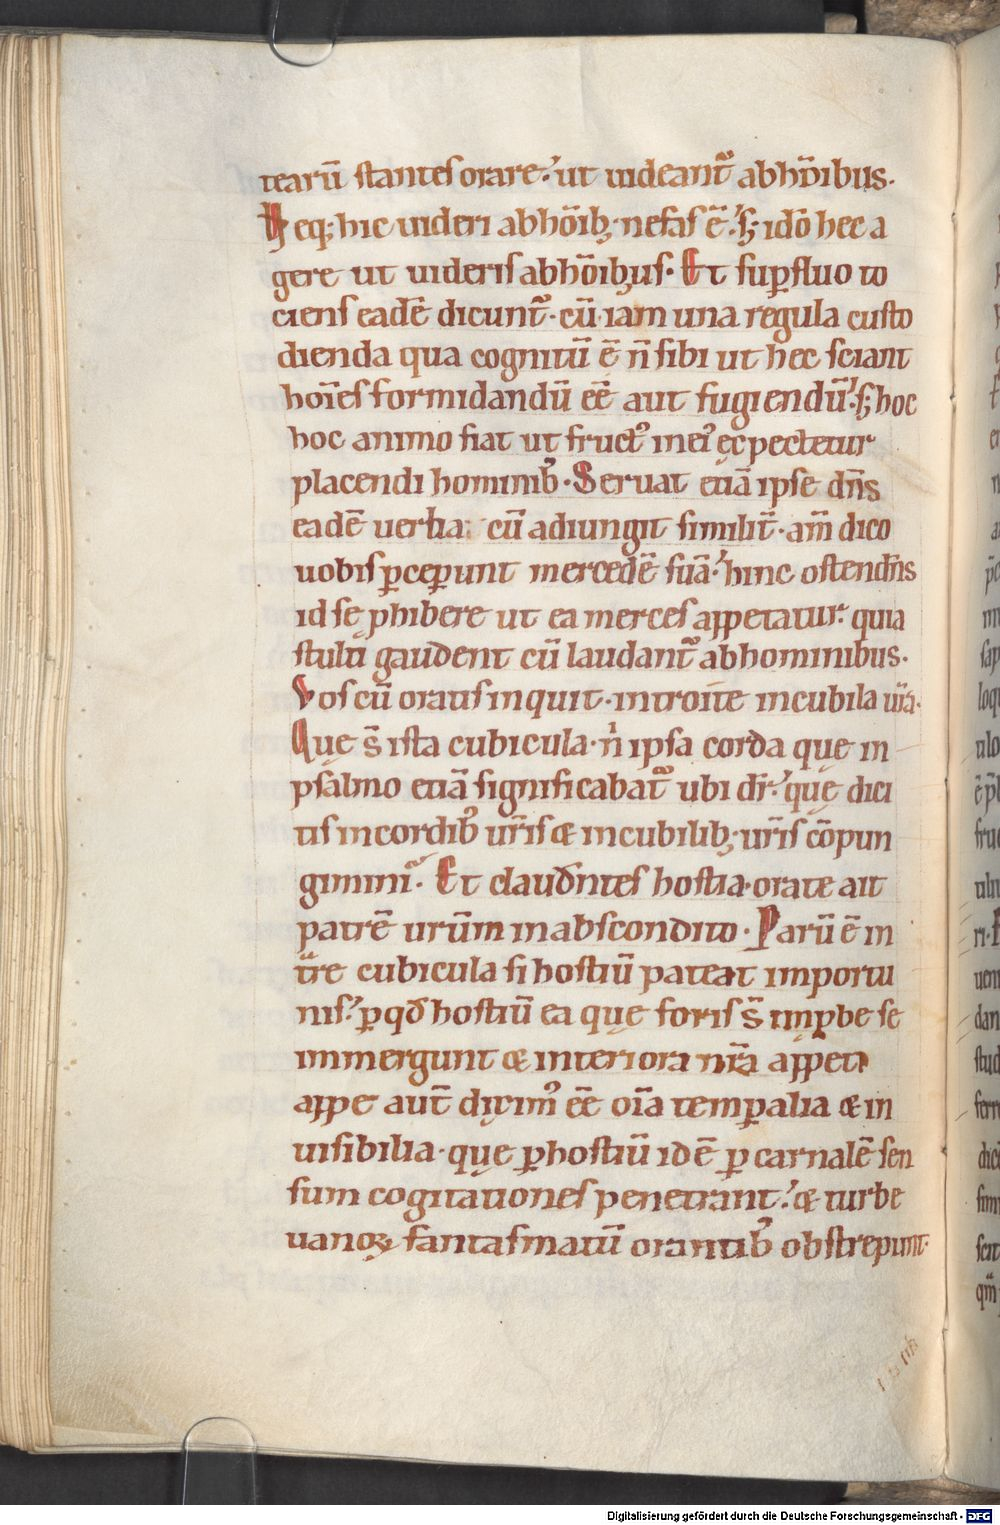 tearū stantes orare. ut uideant᷑ ab hōībus.
Neq; hic uideri ab hōib; nefas ē. s; idō hec a
gere ut uideris ab hōib;us. Et sup̄fluo to
ciens eadē dicunt᷑. cū iam una regula custo
dienda qua cognitū ē n̄ sibi ut hec sciant
hoīes formidandū eē aut fugiendū. s; hoc
hoc animo fiat ut fruct᷒ in ei᷒ ęcpectetur
placendi hominib᷒. Seruat etiā ipse dn̄s
eadē uerba. cū adiungit similit̄. am̄ dico
uobis ꝑceꝑunt mercedē suā. hinc ostendn̄s
id se ꝓhibere ut ea merces appetatur. quia
stulti gaudent cū laudant᷑ ab hominibus.
Vos cū oratis inquit. introite in cubila ur̄a.
Quę s̄ ista cubicula. n̄ ipsa corda quę in
psalmo etiā significabat᷑ ubi dr̄. quę dici
tis in cordib᷒ ur̄is & in cubilib; ur̄is cōpun
gimini᷑. Et claudn̄tes hostia. orate ait
patrē urūm in abscondito. Parū ē in
tr̄e cubicula si hostiū pateat importu
nis. ꝑ qd̄ hostiū ea quę foris s̄ īmꝓbe se
immergunt & interiora nr̄a appeti
appe aut̄ dixim᷒ eē oīa temꝑalia & in
uisibilia. quę ꝑ hostiū idē ꝑ carnalē sen
sum cogitationes penetrant. & turbe
uanoꝝ fantasmatū orantib᷒ obstrepunt.
Digitalisierung gefördert durch die Deutsche Forschungsgemeinschaft - DFG